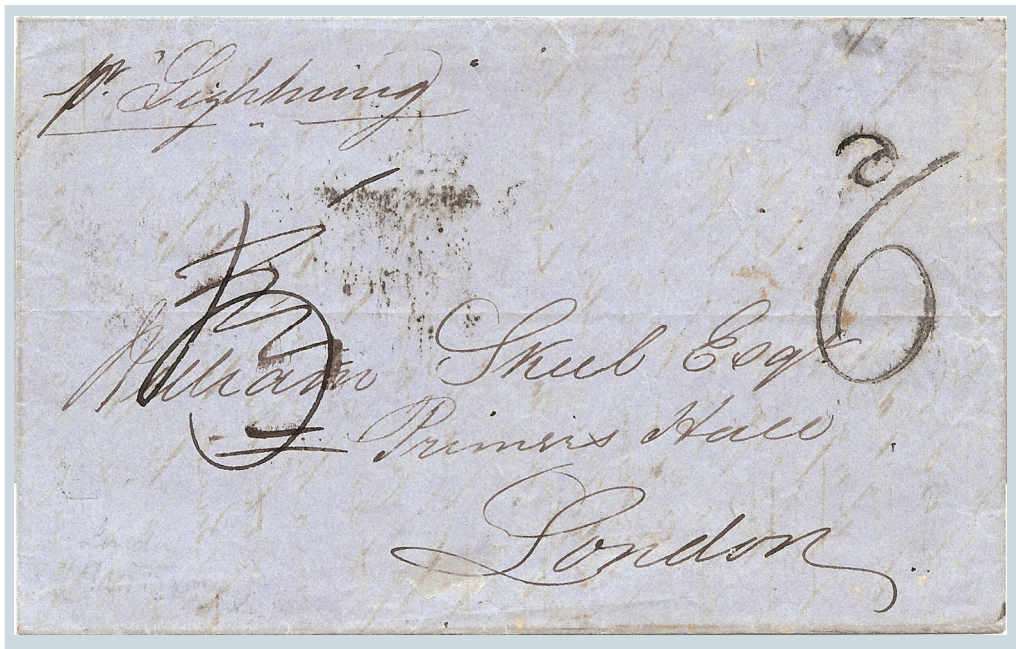 pr. "Lightning"
6
William Skeel Esqr
Primers Hall
London